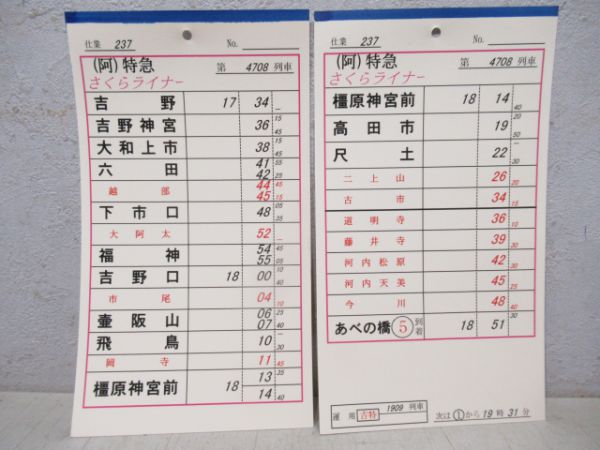 仕業 237 No.
(阿) 特急 第 4708 列車
さくらライナー
吉野 17 34 —
吉野神宮 36 15 45
大和上市 38 15 45
六田 41 55
42 25
越部 44 45
45 15
下市口 48 05 25
大阿太 52 —
福神 54 45
55 05
吉野口 18 00 10 40
市尾 04 10
壷阪山 06 25
07 40
飛鳥 10 — 30
岡寺 11 45
橿原神宮前 18 13 35
14 40
仕業 237 No.
(阿) 特急 第 4708 列車
さくらライナー
橿原神宮前 18 14 40
高田市 19 20 50
尺土 22 — 30
二上山 26 20
古市 34 15
道明寺 36 10
藤井寺 39 30
河内松原 42 30
河内天美 45 25
今川 48 40
あべの橋 5 到着 18 51 30
運用 吉特 1909 列車 次は①から19時31分